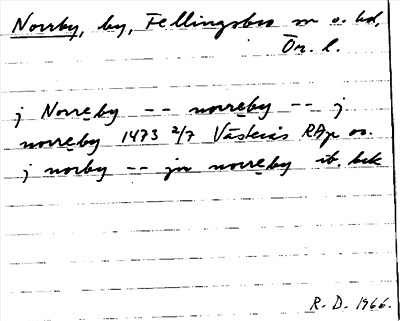 Norrby, by, Fellingsbro sn o. hd,
Ör. l.
j Norreby -- norreby -- j
norreby 1473 2/7 Västerås RAp or.
j norby -- jn norreby ib. bek
R. D. 1966.